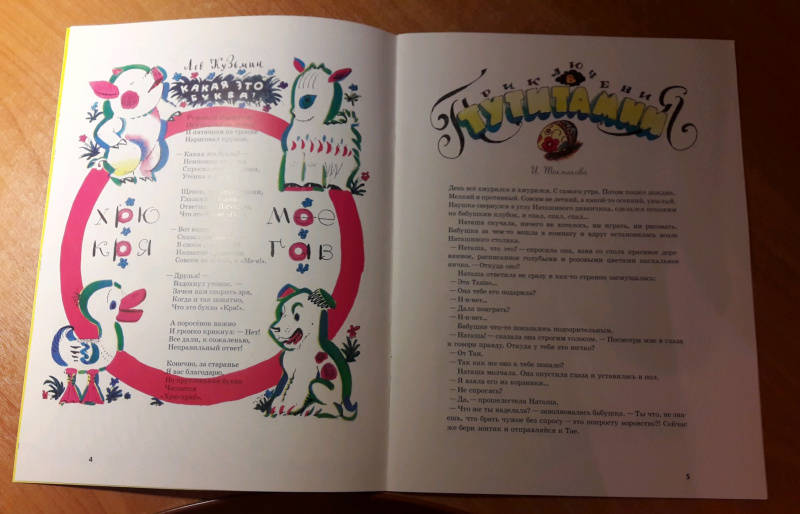 Лев Кузьмин
КАКАЯ ЭТО
БУКВА?
И пятачком на травке
Нарисовал кружок.
ХРЮ
КРЯ
МОЕ
ГАВ
— Друзья! —
Вздохнул утенок. —
Зачем нам спорить зря,
Когда и так понятно,
Что это буква «Кря!».
А поросенок важно
И громко крикнул: — Нет!
Все дали, к сожаленью,
Неправильный ответ!
Конечно, за старанье
Я вас благодарю,
Но кругленькая буква
Читается
«Хрю-хрю!».
4
ПРИКЛЮЧЕНИЯ
В
ТУТИТАМИИ
И. Токмакова
День всё хмурился и хмурился. С самого утра. Потом пошел дождик.
Мелкий и противный. Совсем не летний, а какой-то осенний, унылый.
Паушка свернулся в углу Наташиного диванчика, сделался похожим
на бабушкин клубок, и спал, спал, спал...
Наташа скучала, ничего не хотелось, ни играть, ни рисовать.
Бабушка за чем-то вошла в комнату и вдруг остановилась возле
Наташиного столика.
— Наташа, что это? — спросила она, взяв со стола красивое дере-
вянное, расписанное голубыми и розовыми цветами пасхальное
яичко. — Откуда оно?
Наташа ответила не сразу и как-то странно засмущалась:
— Это Таино...
— Она тебе его подарила?
— Н-н-нет...
— Дала поиграть?
— Н-н-нет...
Бабушке что-то показалось подозрительным.
— Наташа! — сказала она строгим голосом. — Посмотри мне в глаза
и говори правду. Откуда у тебя это яичко?
— От Таи.
— Так как же оно к тебе попало?
Наташа молчала. Она опустила глаза и уставилась в пол.
— Я взяла его из коробки...
— Не спросясь?
— Да, — прошелестела Наташа.
— Что же ты наделала? — заволновалась бабушка. — Ты что, не зна-
ешь, что брать чужое без спросу — это попросту воровство?! Сейчас
же бери зонтик и отправляйся к Тае.
5